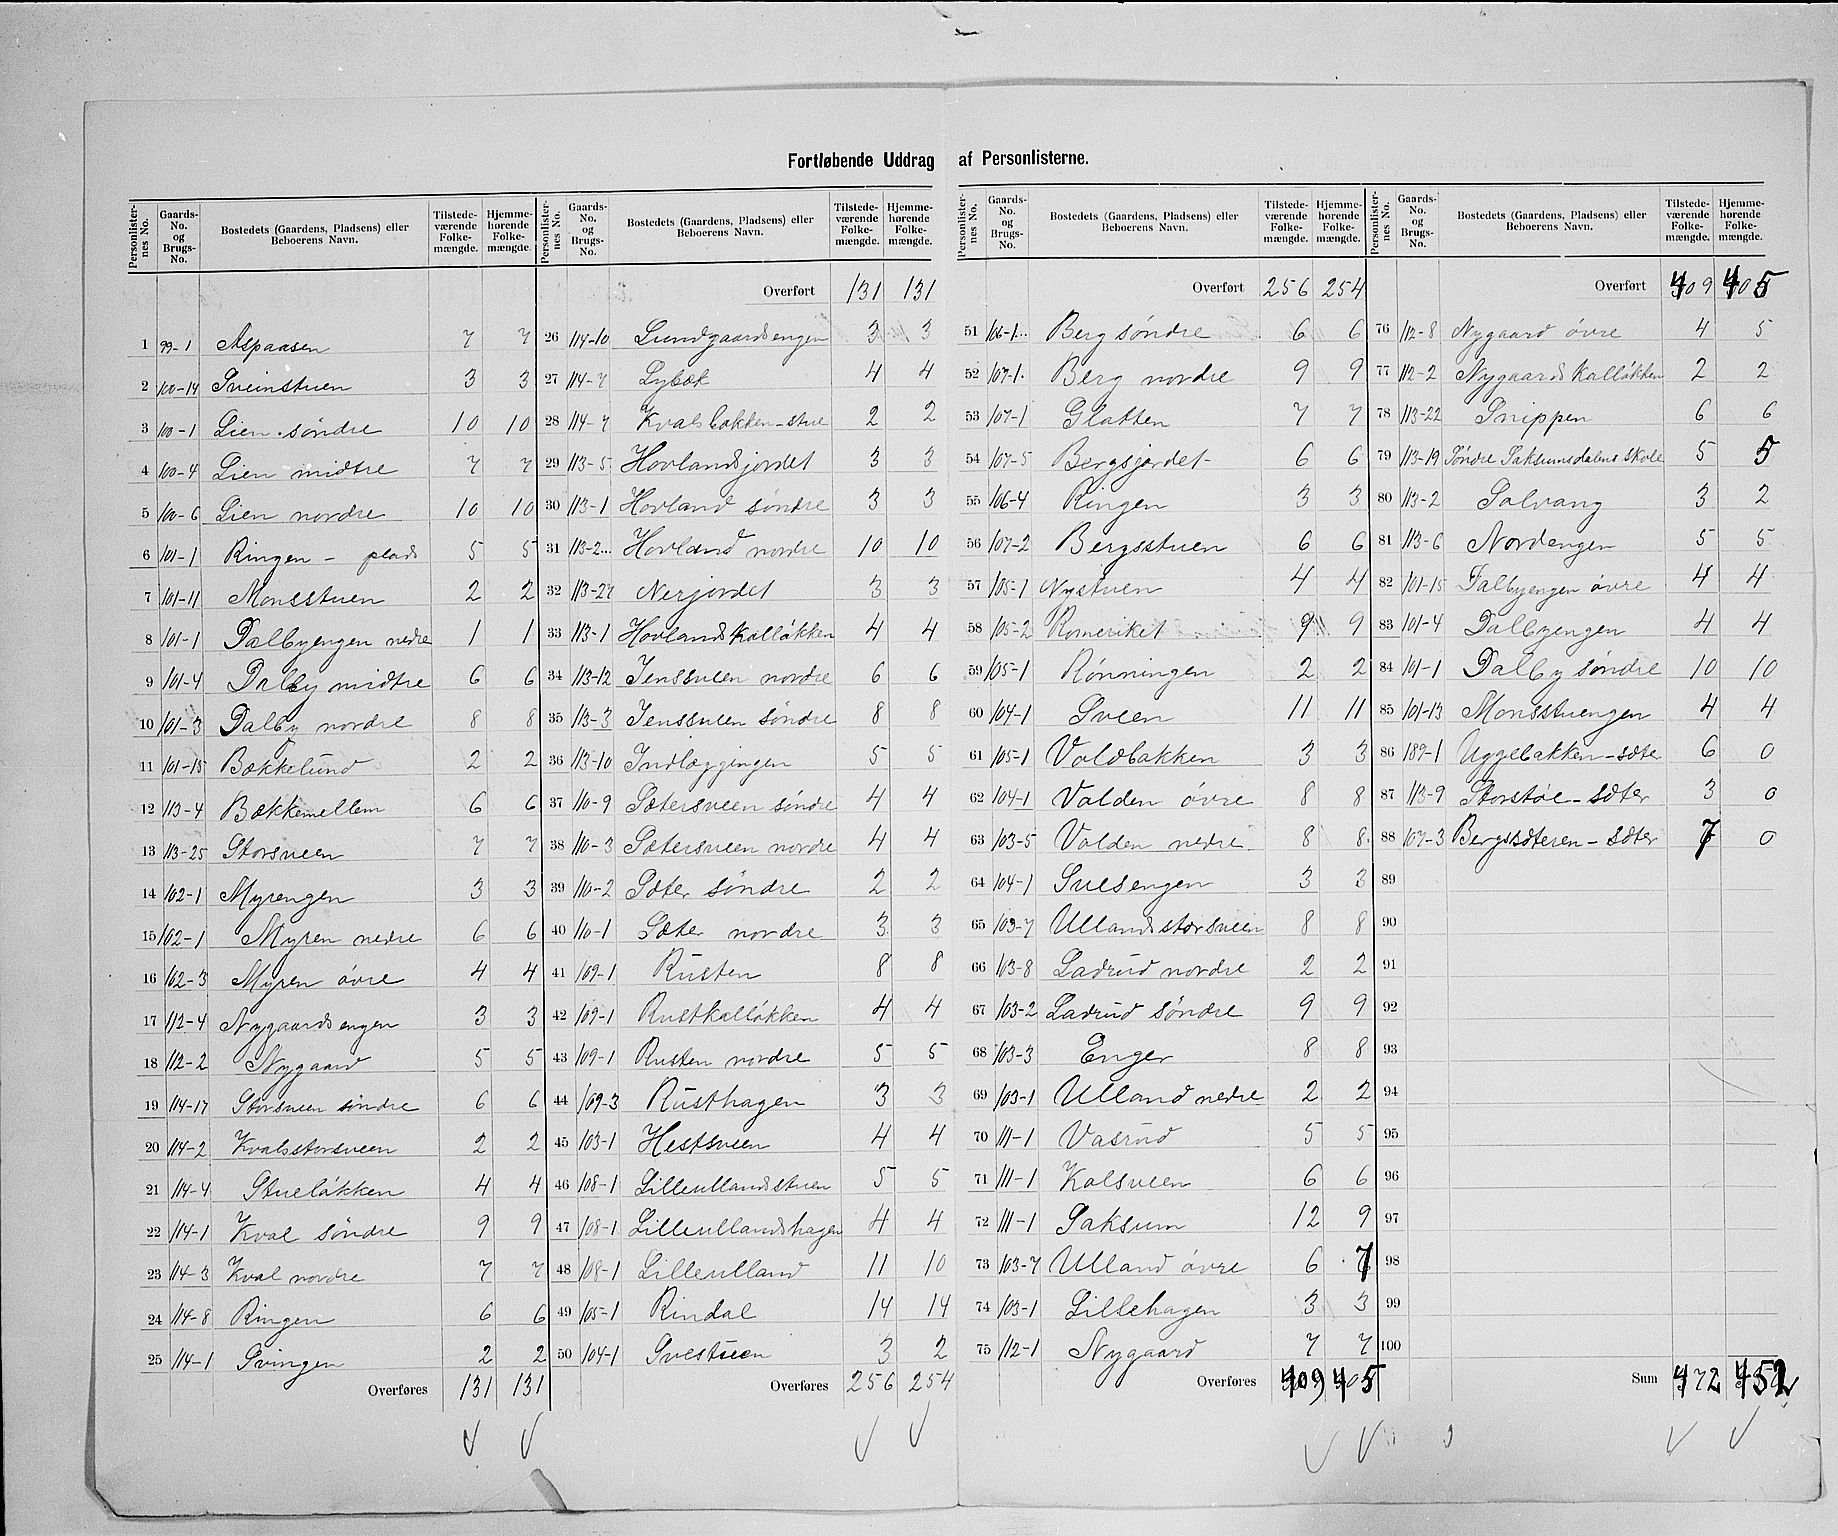 Fortløbende Uddrag af Personlisterne.
Personlister-nes No. | Gaards-No. og Brugs-No. | Bostedets (Gaardens, Pladsens) eller Beboerens Navn. | Tilstede-værende Folke-mængde. | Hjemme-hørende Folke-mængde.
1 99-1 Aspaasen 7 7
2 100-14 Sveinstuen 3 3
3 100-1 Lien søndre 10 10
4 100-4 Lien midtre 7 7
5 100-6 Lien nordre 10 10
6 101-1 Ringen - plads 5 5
7 101-11 Monsstuen 2 2
8 101-1 Dalbyengen nedre 1 1
9 101-4 Dalby midtre 6 6
10 101-3 Dalby nordre 8 8
11 101-15 Bækkelund 2 2
12 113-4 Bækkemellem 6 6
13 113-25 Storsveen 7 7
14 102-1 Myrengen 3 3
15 102-1 Myren nedre 6 6
16 102-3 Myren øvre 4 4
17 112-4 Nygaardsengen 3 3
18 112-2 Nygaard 5 5
19 114-17 Storsveen søndre 6 6
20 114-2 Kvalsstorsveen 2 2
21 114-4 Stueløkken 4 4
22 114-1 Kval søndre 9 9
23 114-3 Kval nordre 7 7
24 114-8 Ringen 6 6
25 114-1 Svingen 2 2
Overføres 131 131
Personlister-nes No. | Gaards-No. og Brugs-No. | Bostedets (Gaardens, Pladsens) eller Beboerens Navn. | Tilstede-værende Folke-mængde. | Hjemme-hørende Folke-mængde.
Overført 131 131
26 114-10 Lundgaardsengen 3 3
27 114-7 Lybæk 4 4
28 114-7 Kvalsbakken-stue 2 2
29 113-5 Hovlandsjordet 3 3
30 113-1 Hovland søndre 3 3
31 113-2... Hovland nordre 10 10
32 113-27 Nerjordet 3 3
33 113-1 Hovlandskalløkken 4 4
34 113-12 Jenssveen nordre 6 6
35 113-3 Jenssveen søndre 8 8
36 113-10 Indlæggingen 5 5
37 110-9 Sætersveen søndre 4 4
38 110-3 Sætersveen nordre 4 4
39 110-2 Sæter søndre 2 2
40 110-1 Sæter nordre 3 3
41 109-1 Rusten 8 8
42 109-1 Rustkalløkken 4 4
43 109-1 Rusten nordre 5 5
44 109-3 Rusthagen 3 3
45 103-1 Hestsveen 4 4
46 108-1 Lilleullandsstuen 5 5
47 108-1 Lilleullandshagen 4 4
48 108-1 Lilleulland 11 10
49 105-1 Rindal 14 14
50 104-1 Svestuen 3 2
Overføres 256 254
Personlister-nes No. | Gaards-No. og Brugs-No. | Bostedets (Gaardens, Pladsens) eller Beboerens Navn. | Tilstede-værende Folke-mængde. | Hjemme-hørende Folke-mængde.
Overført 256 254
51 106-1... Berg søndre 6 6
52 107-1. Berg nordre 9 9
53 107-1 Glatten 7 7
54 107-5 Bergsjordet 6 6
55 106-4 Ringen 3 3
56 107-2 Bergsstuen 6 6
57 105-1 Nystuen 4 4
58 105-2 Romeriket 9 9
59 105-1 Rønningen 2 2
60 104-1 Sveen 11 11
61 105-1 Voldbakken 3 3
62 104-1 Volden øvre 8 8
63 103-5 Volden nedre 8 8
64 104-1 Svesengen 3 3
65 103-7 Ullandsstorsveen 8 8
66 103-8 Ladrud nordre 2 2
67 103-2 Ladrud søndre 9 9
68 103-3 Enger 8 8
69 103-1 Ulland nedre 2 2
70 111-1 Vasrud 5 5
71 111-1 Kalsveen 6 6
72 111-1 Saksum 12 9
73 103-7 Ulland øvre 6 7
74 103-1 Lillehagen 3 3
75 112-1 Nygaard 7 7
Overføres 409 405
Personlister-nes No. | Gaards-No. og Brugs-No. | Bostedets (Gaardens, Pladsens) eller Beboerens Navn. | Tilstede-værende Folke-mængde. | Hjemme-hørende Folke-mængde.
Overført 409 405
76 112-8 Nygaard øvre 4 5
77 112-2 Nygaardskalløkken 2 2
78 113-22 Snippen 6 6
79 113-19 Søndre Saksumsdalens skole 5 5
80 113-2 Solvang 3 2
81 113-6 Nordengen 5 5
82 101-15 Dalbyengen øvre 4 4
83 101-4 Dalbyengen 4 4
84 101-1 Dalby søndre 10 10
85 101-13 Monsstuengen 4 4
86 189-1 Uggebakken-sæter 6 0
87 113-9 Storstøl-sæter 3 0
88 107-3 Bergssæteren-sæter 7 0
89
90
91
92
93
94
95
96
97
98
99
100
Sum 472 452